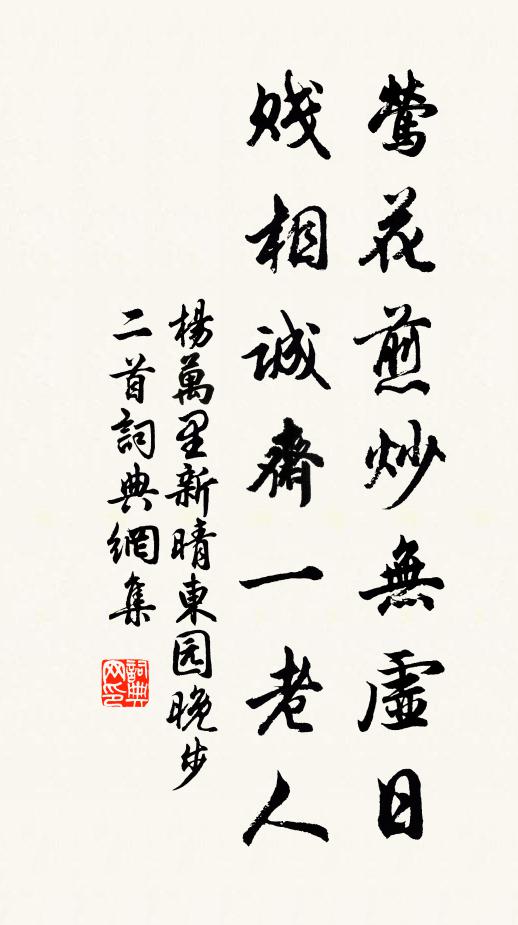 鶯花煎炒無虛日
贱相誠齋一老人
楊萬里新晴東园晚步
二首詞典網集
詞典网印